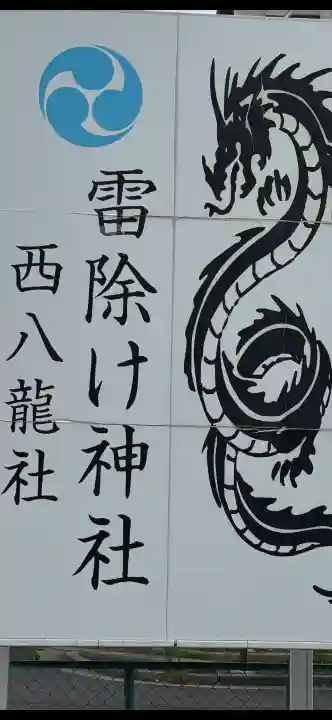 雷除け神社
西八龍社